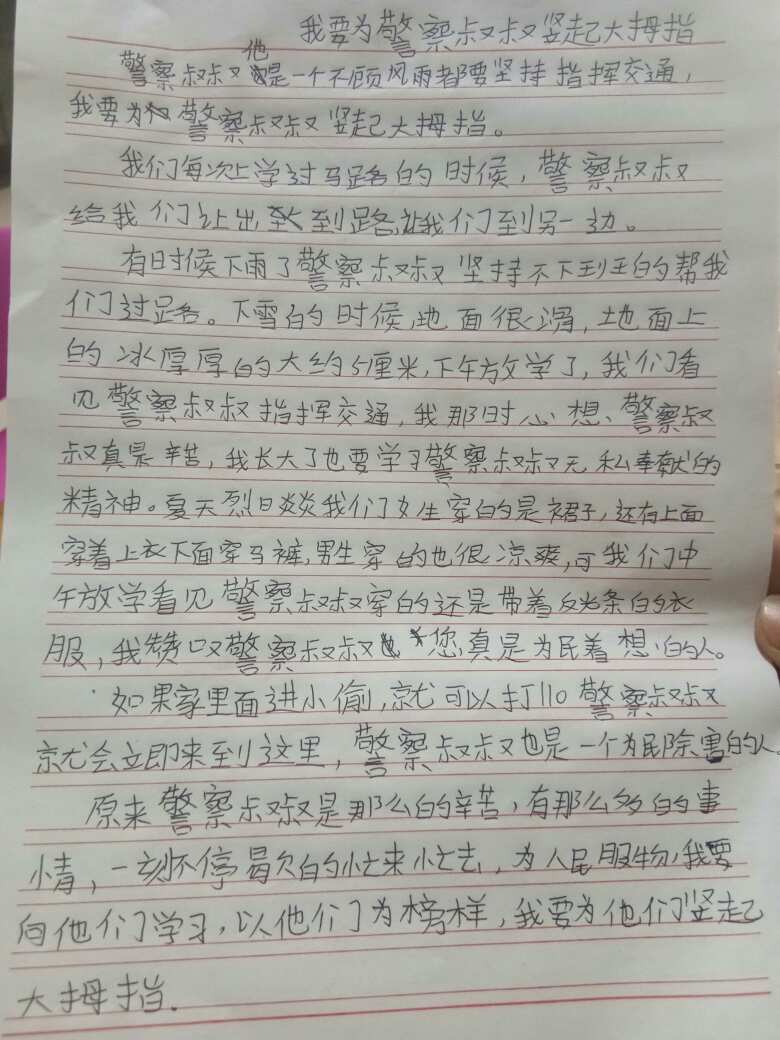 我要为警察叔叔竖起大拇指
警察叔叔他是一个不顾风雨都要坚持指挥交通，
我要为警察叔叔竖起大拇指。
我们每次上学过马路的时候，警察叔叔
给我们让出到路让我们到另一边。
有时候下雨了警察叔叔坚持不下到王的帮我
们过路。下雪的时候,地面很滑，土地面上
的冰厚厚的大约5厘米,下午放学了，我们看
见警察叔叔指挥交通，我那时心想、警察叔
叔真是辛苦，我长大了也要学习警察叔叔无私奉献的
精神。夏天烈日炎炎我们女生穿的是裙子，还有上面
穿着上衣下面穿马裤,男生穿的也很凉爽,可我们中
午放学看见警察叔叔穿的还是带着反光条的衣
服，我赞叹警察叔叔您真是为民着想的人。
如果家里面进小偷，就可以打110警察叔叔
就会立即来到这里，警察叔叔也是一个为民除害的人。
原来警察叔叔是那么的辛苦，有那么多的事
情，一刻不停歇的忙来忙去，为人民服物，我要
向他们学习，以他们为榜样，我要为他们竖起
大拇指.